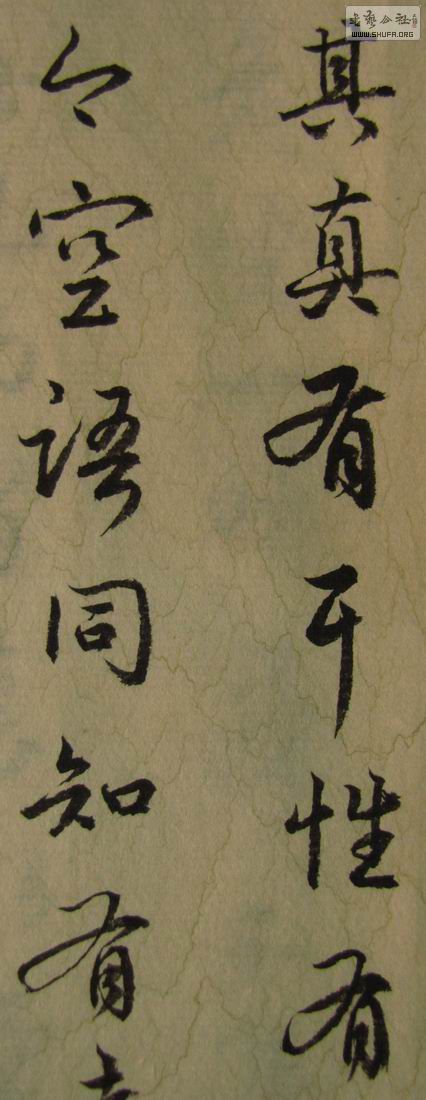 書藝公社
WWW.SHUFA.ORG
其真有于性有
今空語同知有